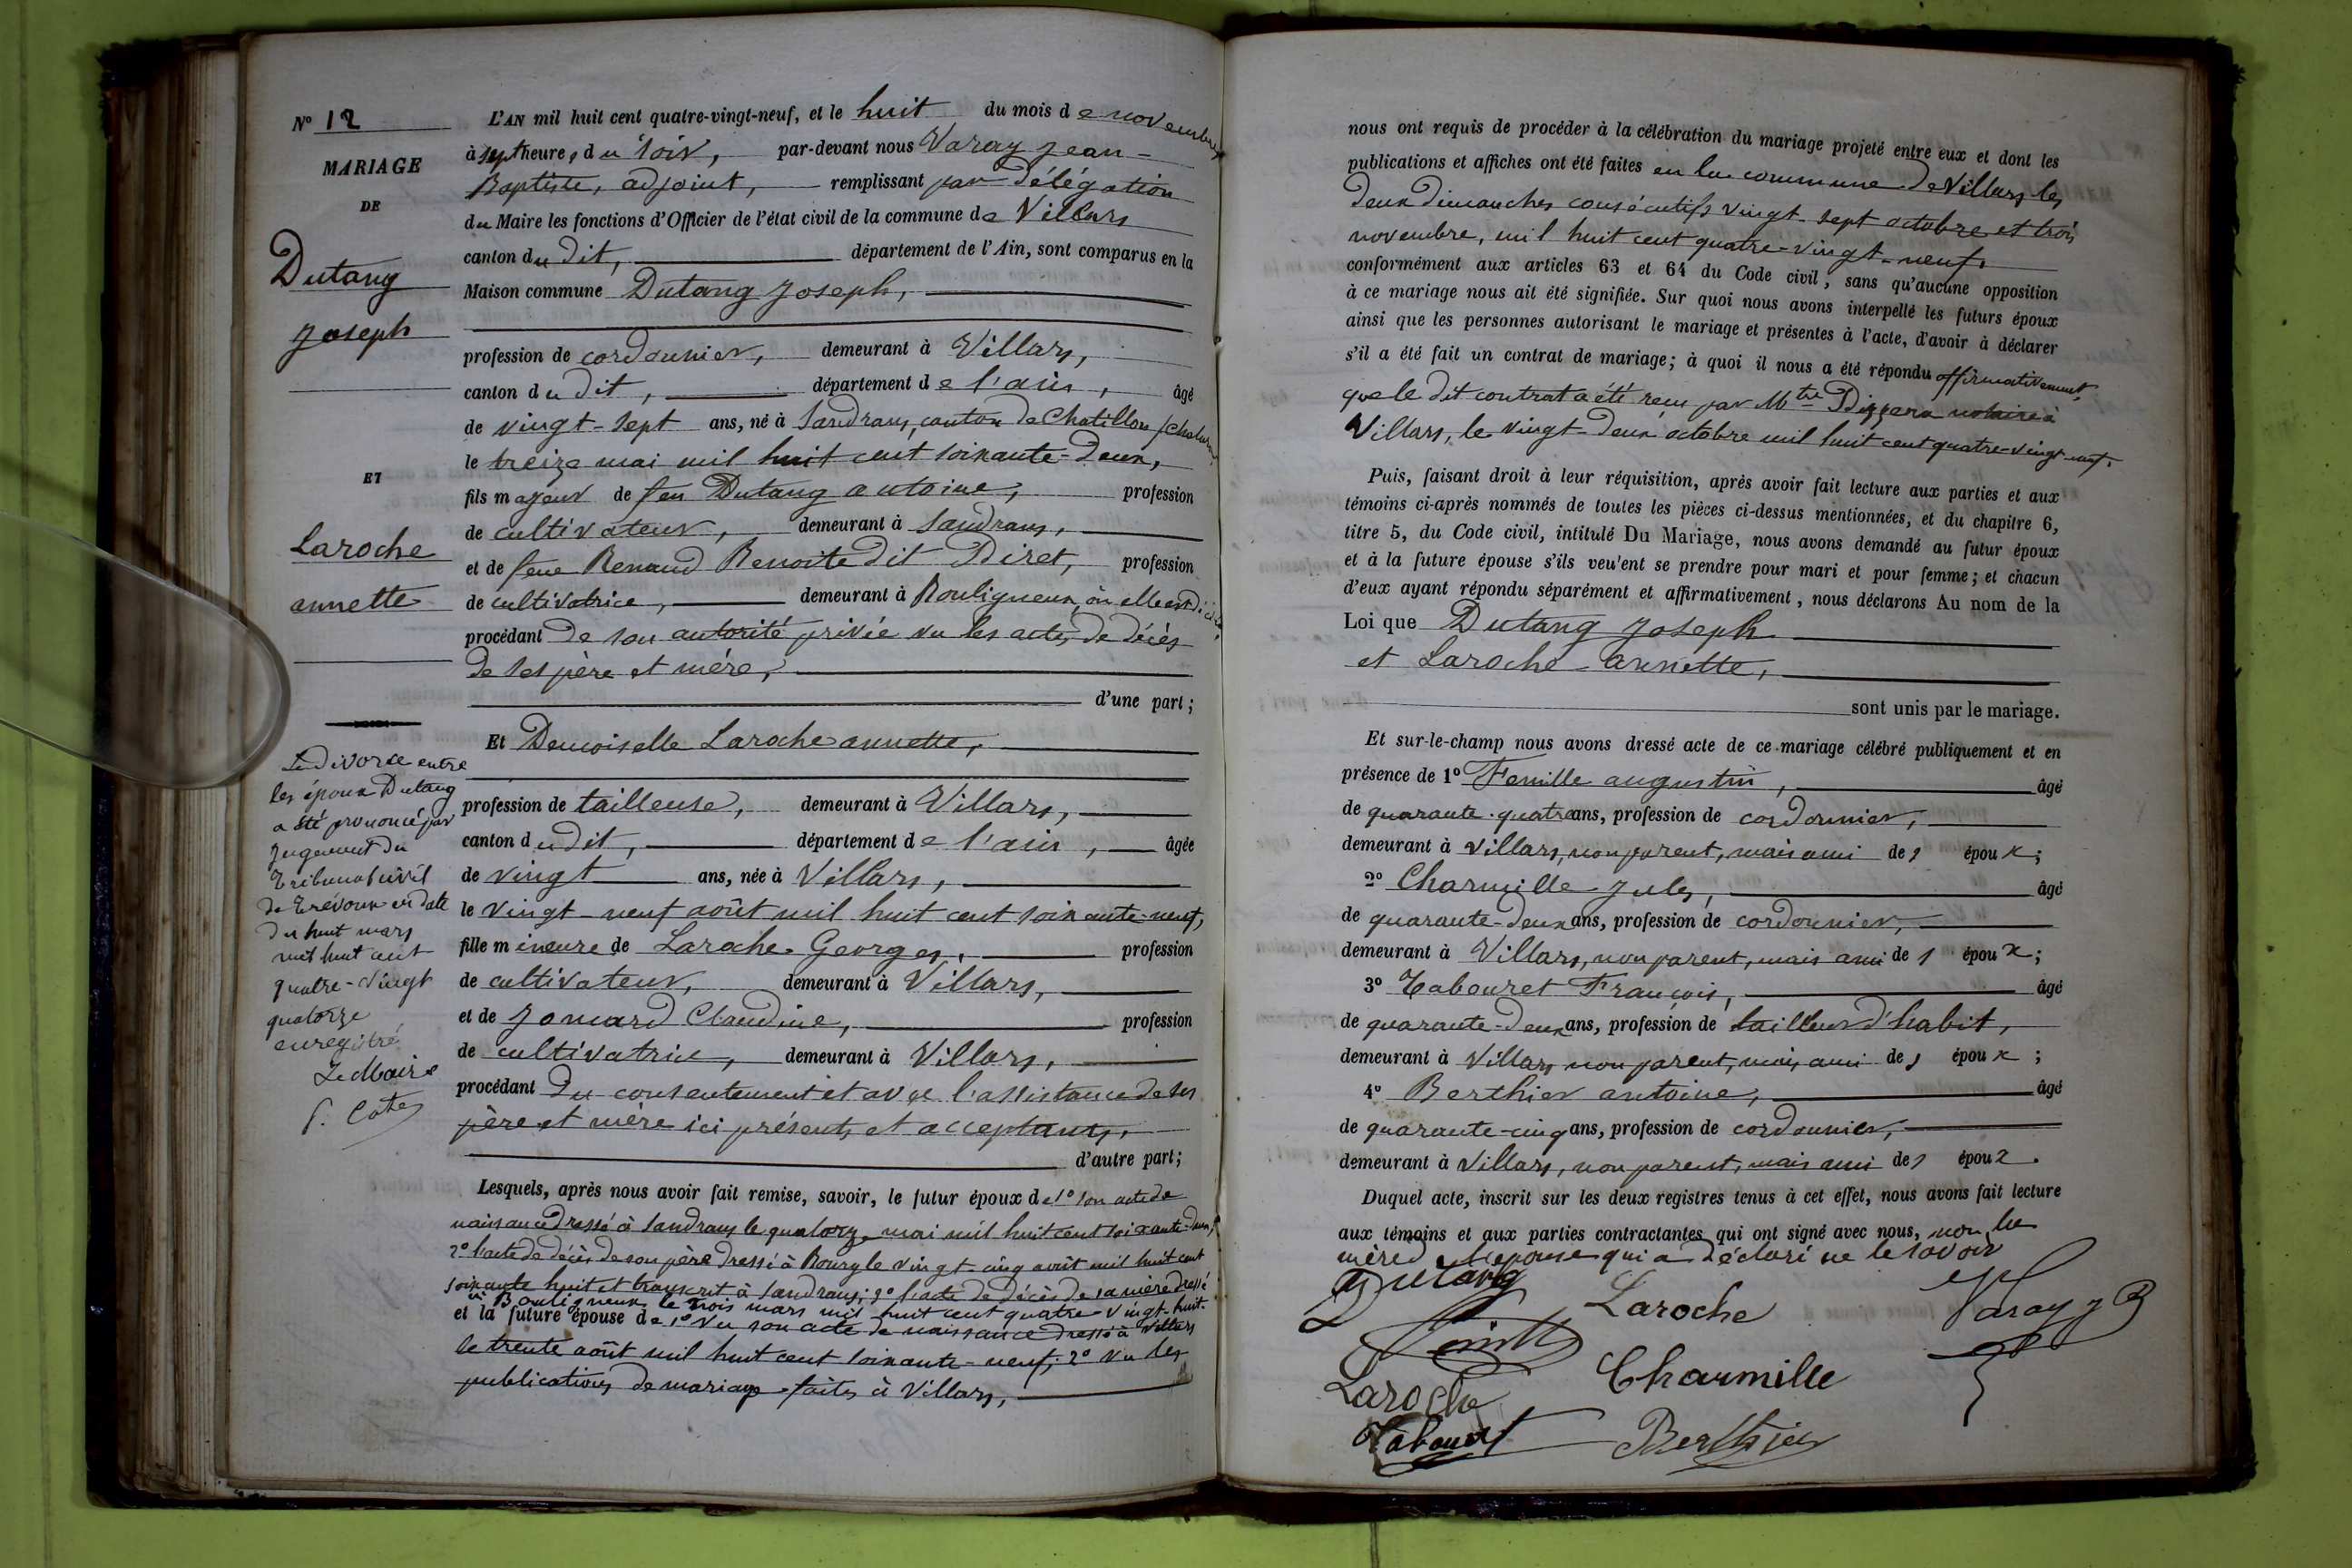 N° 12
MARIAGE
DE
Dutang
Joseph
ET
Laroche
annette
Le divorce entre
les époux Dutang
a été prononcé par
jugement du
Tribunal civil
de Trévoux en date
du huit mars
mil huit cent
quatre-vingt
quatorze
enregistré
Le Maire
L'AN mil huit cent quatre-vingt-neuf, et le huit du mois de novembre
à sept heures du soir, par-devant nous Varay Jean-
Baptiste, adjoint, remplissant par délégation
du Maire les fonctions d'Officier de l'état civil de la commune de Villars
canton du dit, département de l'Ain, sont comparus en la
Maison commune Dutang Joseph,
profession de cordonnier, demeurant à Villars,
canton du dit, département de l'ain, âgé
de vingt-sept ans, né à Sandrans, canton de Chatillon s/Chalaronne
le treize mai mil huit cent soixante-deux,
fils majeur de feu Dutang antoine, profession
de cultivateur, demeurant à Sandrans,
et de feue Renaud Benoite dit Diret, profession
de cultivatrice, demeurant à Bouligneux, où elle est décédée,
procédant de son autorité privée vu les actes de décès
de ses père et mère,
d'une part;
Et Demoiselle Laroche annette,
profession de tailleuse, demeurant à Villars,
canton du dit, département de l'ain, âgée
de vingt ans, née à Villars,
le vingt-neuf août mil huit cent soixante-neuf,
fille mineure de Laroche Georges, profession
de cultivateur, demeurant à Villars,
et de Jomard Claudine, profession
de cultivatrice, demeurant à Villars,
procédant du consentement et avec l'assistance de ses
père et mère ici présents et acceptants,
d'autre part;
Lesquels, après nous avoir fait remise, savoir, le futur époux de 1° son acte de
naissance dressé à Sandrans le quatorze mai mil huit cent soixante-deux,
2° l'acte de décès de son père dressé à Bourg le vingt-cinq août mil huit cent
soixante huit et transcrit à Sandrans; 3° l'acte de décès de sa mère dressé
à Bouligneux le trois mars mil huit cent quatre-vingt-huit.
et la future épouse de 1° vu son acte de naissance dressé à Villars
le trente août mil huit cent soixante-neuf; 2° vu les
publications de mariage faites à Villars,
nous ont requis de procéder à la célébration du mariage projeté entre eux et dont les
publications et affiches ont été faites en la commune de Villars les
deux dimanches consécutifs vingt-sept octobre et trois
novembre, mil huit cent quatre-vingt-neuf,
conformément aux articles 63 et 64 du Code civil, sans qu'aucune opposition
à ce mariage nous ait été signifiée. Sur quoi nous avons interpellé les futurs époux
ainsi que les personnes autorisant le mariage et présentes à l'acte, d'avoir à déclarer
s'il a été fait un contrat de mariage; à quoi il nous a été répondu affirmativement,
que le dit contrat a été reçu par Mtre notaire à
Villars, le vingt-deux octobre mil huit cent quatre-vingt-neuf.
Puis, faisant droit à leur réquisition, après avoir fait lecture aux parties et aux
témoins ci-après nommés de toutes les pièces ci-dessus mentionnées, et du chapitre 6,
titre 5, du Code civil, intitulé Du Mariage, nous avons demandé au futur époux
et à la future épouse s'ils veu'ent se prendre pour mari et pour femme; et chacun
d'eux ayant répondu séparément et affirmativement, nous déclarons Au nom de la
Loi que Dutang Joseph
et Laroche annette,
sont unis par le mariage.
Et sur-le-champ nous avons dressé acte de ce mariage célébré publiquement et en
présence de 1° augustin, âgé
de quarante-quatre ans, profession de cordonnier,
demeurant à Villars, non parent, mais ami des époux;
2° Charmille Jules, âgé
de quarante-deux ans, profession de cordonnier,
demeurant à Villars, non parent, mais ami des époux;
3° Tabouret François, âgé
de quarante-deux ans, profession de tailleur d'habit,
demeurant à Villars, non parent, mais ami des époux;
4° Berthier antoine, âgé
de quarante-cinq ans, profession de cordonnier,
demeurant à Villars, non parent, mais ami des époux.
Duquel acte, inscrit sur les deux registres tenus à cet effet, nous avons fait lecture
aux témoins et aux parties contractantes qui ont signé avec nous, non la
mère de l'épouse qui a déclaré ne le savoir
Dutang
Laroche
Varay JB
Laroche
Charmille
Tabouret
Berthier